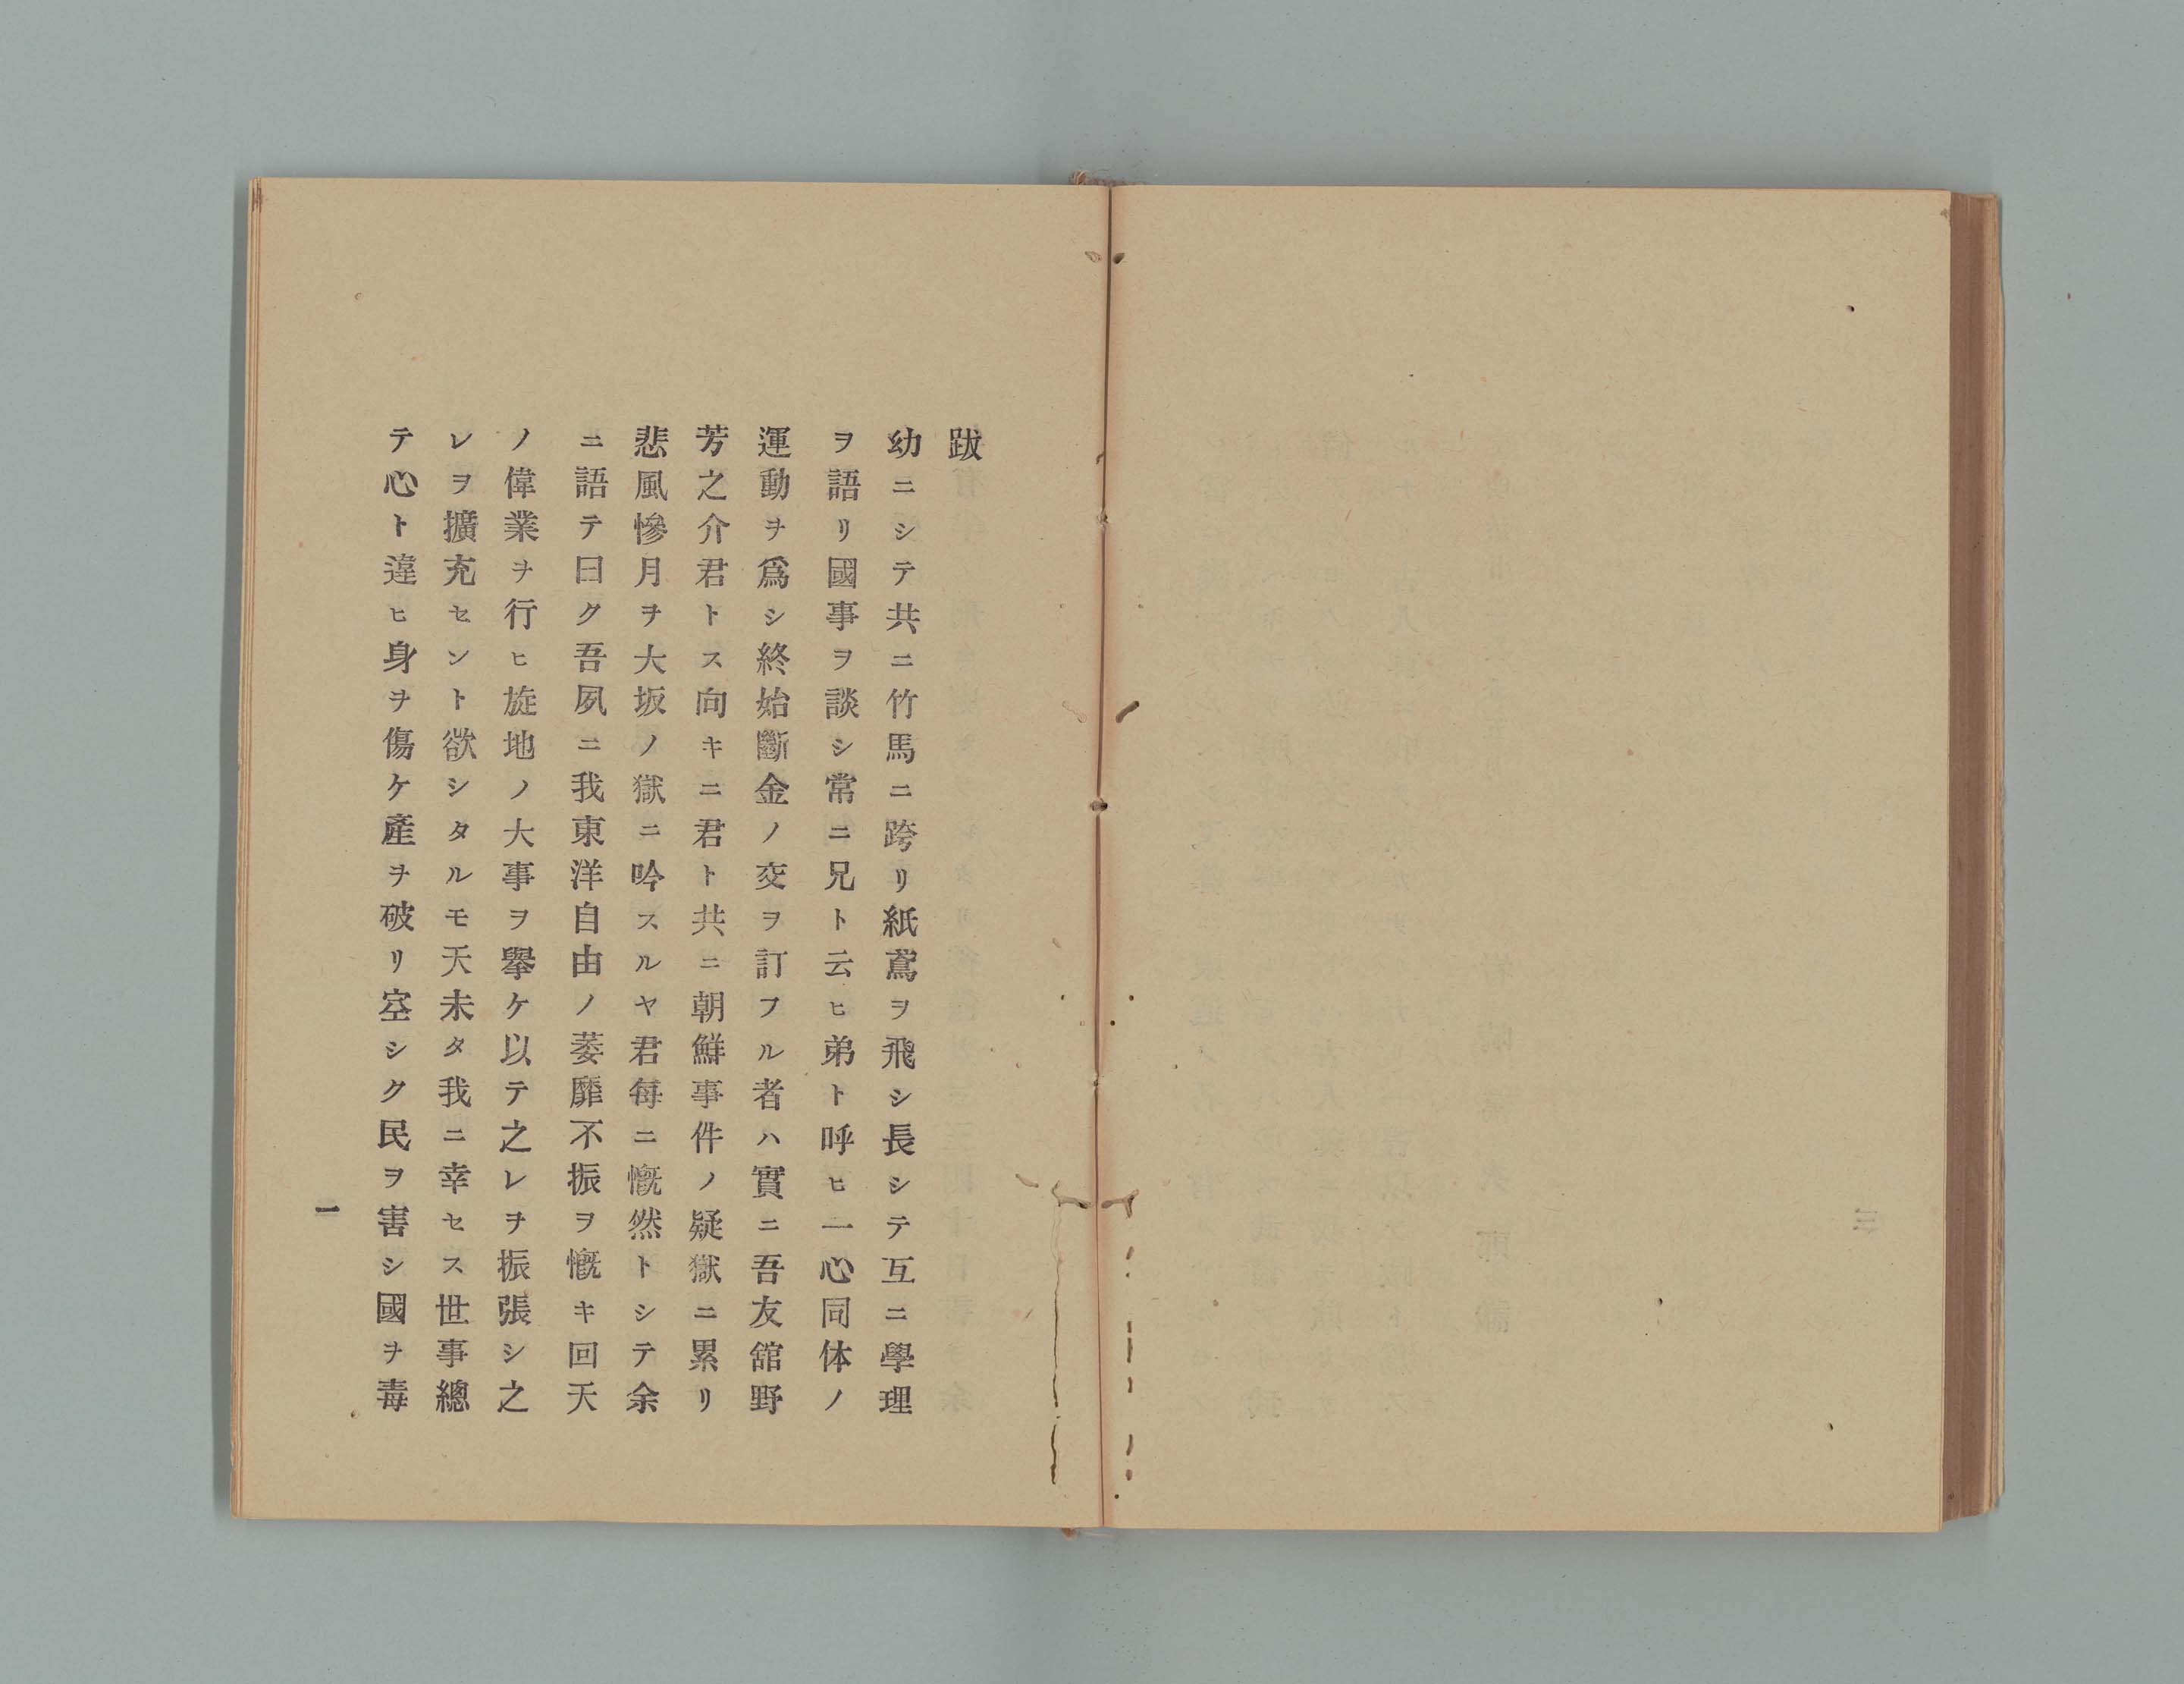 跋
幼ニシテ共ニ竹馬ニ跨リ紙鳶ヲ飛シ長シテ互ニ學理
ヲ語リ國事ヲ談シ常ニ兄ト云ヒ弟ト呼ヒ一心同体ノ
運動ヲ爲シ終始斷金ノ交ヲ訂フル者ハ實ニ吾友舘野
芳之介君トス向キニ君ト共ニ朝鮮事件ノ疑獄ニ累リ
悲風慘月ヲ大坂ノ獄ニ吟スルヤ君每ニ慨然トシテ余
ニ語テ曰ク吾夙ニ我東洋自由ノ萎靡不振ヲ慨キ回天
ノ偉業ヲ行ヒ旋地ノ大事ヲ擧ケ以テ之レヲ振張シ之
レヲ擴充セント欲シタルモ天未タ我ニ幸セス世事總
テ心ト違ヒ身ヲ傷ケ產ヲ破リ空シク民ヲ害シ國ヲ毒
一